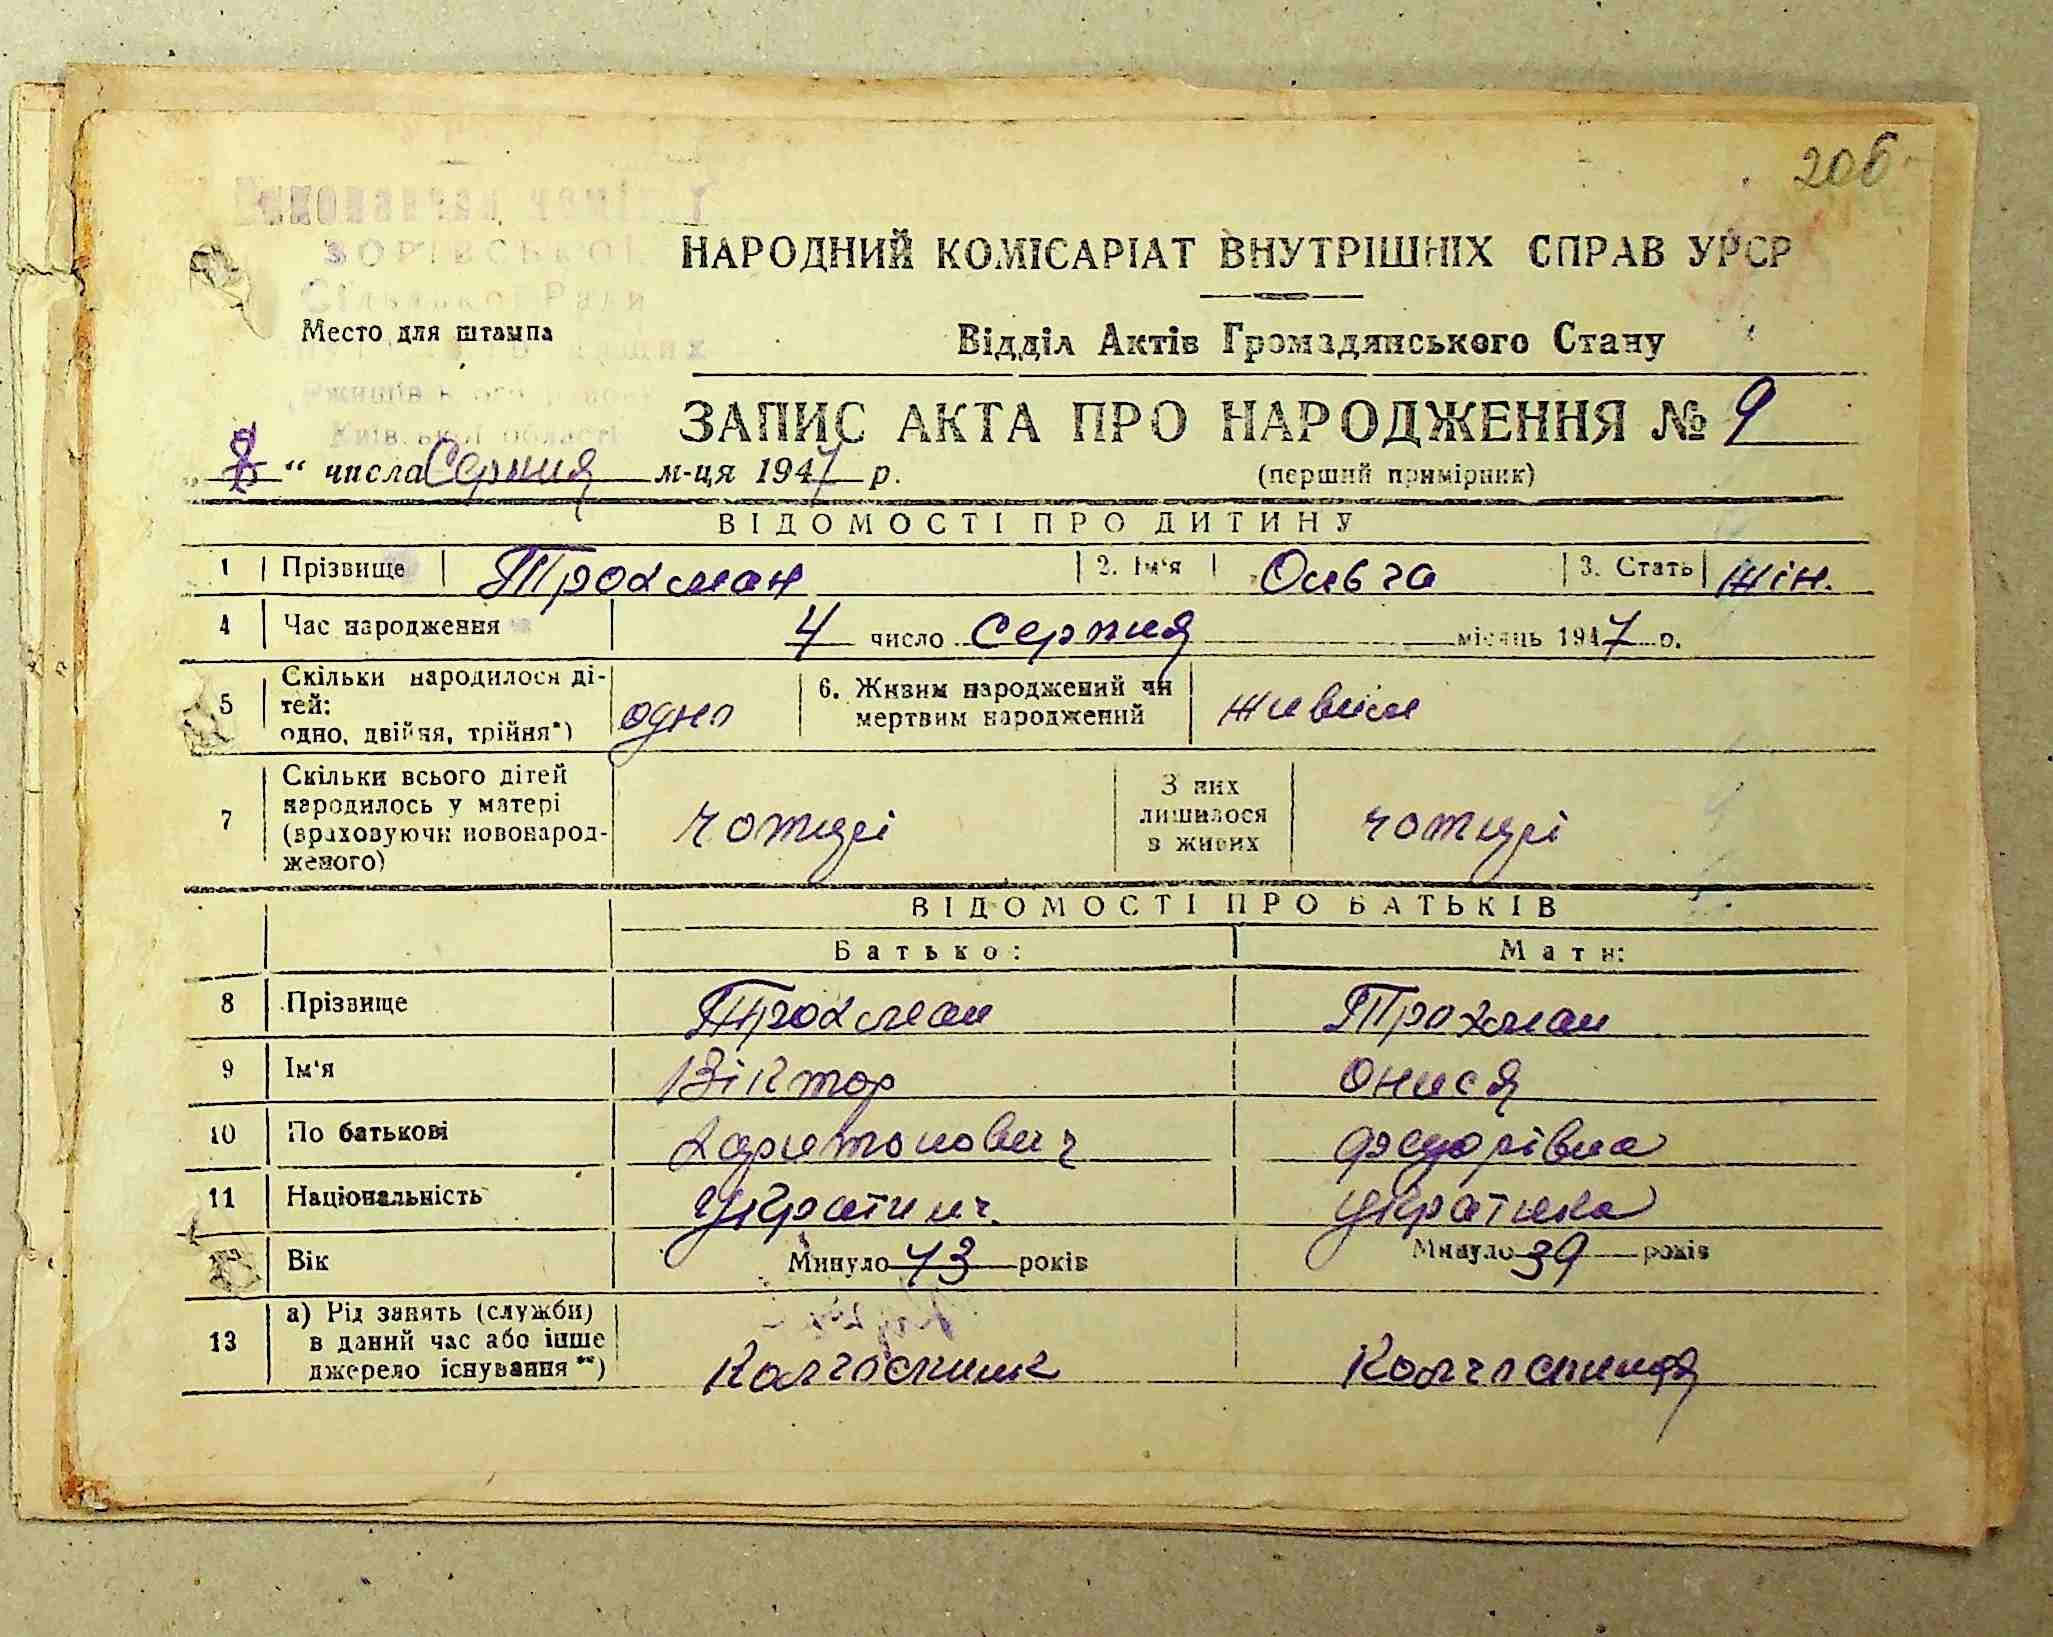 206
ЗОРІВСЬКОЇ
Сільської Ради
Київської області
НАРОДНИЙ КОМІСАРІАТ ВНУТРІШНІХ СПРАВ УРСР
Место для штампа
Відділ Актів Громадянського Стану
ЗАПИС АКТА ПРО НАРОДЖЕННЯ № 9
„8“ числа Серпня м-ця 1947 р.
(перший примірник)
ВІДОМОСТІ ПРО ДИТИНУ
1 Прізвище Трохман 2. Ім'я Ольга 3. Стать жін.
4 Час народження 4 число Серпня місяць 1947 р.
5 Скільки народилося ді-
тей:
одно, двійня, трійня*) одно 6. Живим народжений чи
мертвим народжений живим
7 Скільки всього дітей
народилось у матері
(враховуючи новонарод-
женого) чотирі
З них
лишилося
в живих чотирі
ВІДОМОСТІ ПРО БАТЬКІВ
Батько: Мати:
8 Прізвище Трохман Трохман
9 Ім'я Віктор Онися
10 По батькові Харитонович Федорівна
11 Національність Українц. Українка
Вік Минуло 43 років Минуло 39 років
13 а) Рід занять (служби)
в даний час або інше
джерело існування **) Колгоспник Колгоспниця